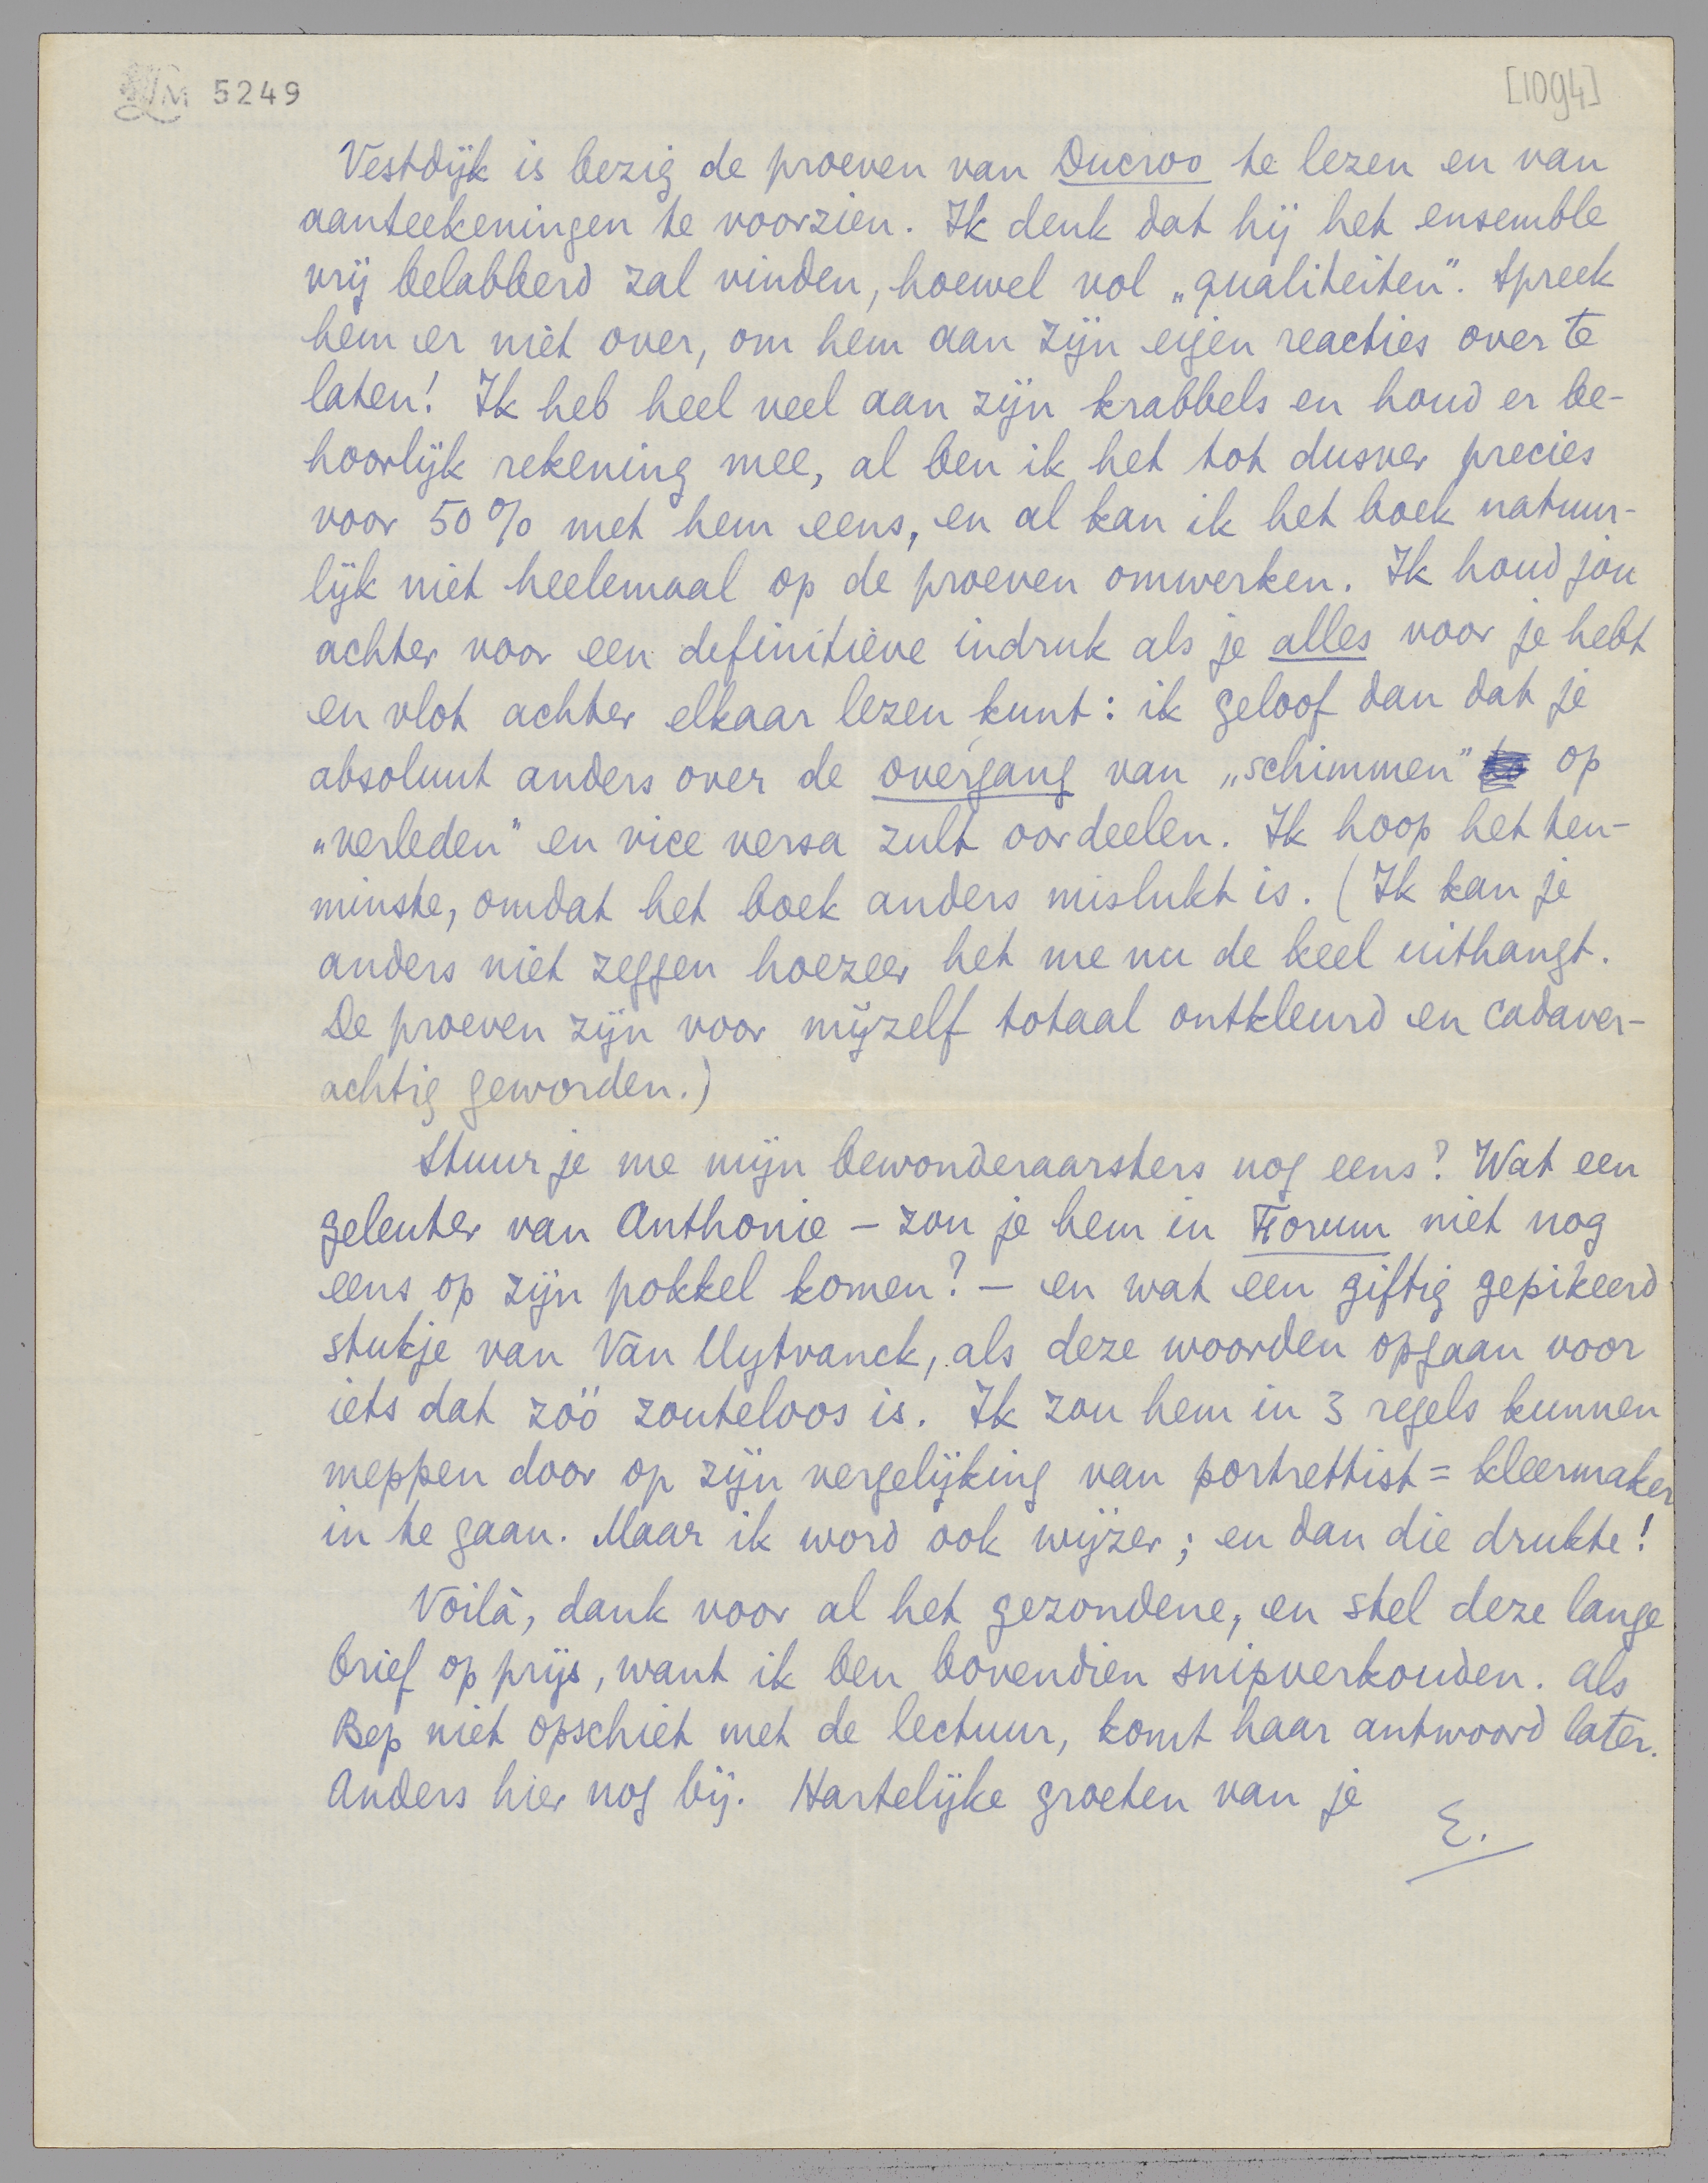 LM 5249
[1094]
Vestdijk is bezig de proeven van Ducroo te lezen en van
aanteekeningen te voorzien. Ik denk dat hij het ensemble
vrij belabberd zal vinden, hoewel vol „qualiteiten”. Spreek
hem er niet over, om hem aan zijn eigen reacties over te
laten! Ik heb heel veel aan zijn krabbels en houd er be-
hoorlijk rekening mee, al ben ik het tot dusver precies
voor 50% met hem eens, en al kan ik het boek natuur-
lijk niet heelemaal op de proeven omwerken. Ik houd jou
achter voor een definitieve indruk als je alles voor je hebt
en vlot achter elkaar lezen kunt: ik geloof dan dat je
absoluut anders over de overgang van „schimmen” op
„verleden” en vice versa zult oordeelen. Ik hoop het ten-
minste, omdat het boek anders mislukt is. (Ik kan je
anders niet zeggen hoezeer het me nu de keel uithangt.
De proeven zijn voor mijzelf totaal ontkleurd en cadaver-
achtig geworden.)
Stuur je me mijn bewonderaarsters nog eens? Wat een
geleuter van Anthonie – zou je hem in Forum niet nog
eens op zijn pokkel komen? – en wat een giftig gepikeerd
stukje van Van Uytvanck, als deze woorden opgaan voor
iets dat zóó zouteloos is. Ik zou hem in 3 regels kunnen
meppen door op zijn vergelijking van portrettist = kleermaker
in te gaan. Maar ik word ook wijzer; en dan die drukte!
Voilà, dank voor al het gezondene, en stel deze lange
brief op prijs, want ik ben bovendien snipverkouden. Als
Bep niet opschiet met de lectuur, komt haar antwoord later.
Anders hier nog bij. Hartelijke groeten van je
E.